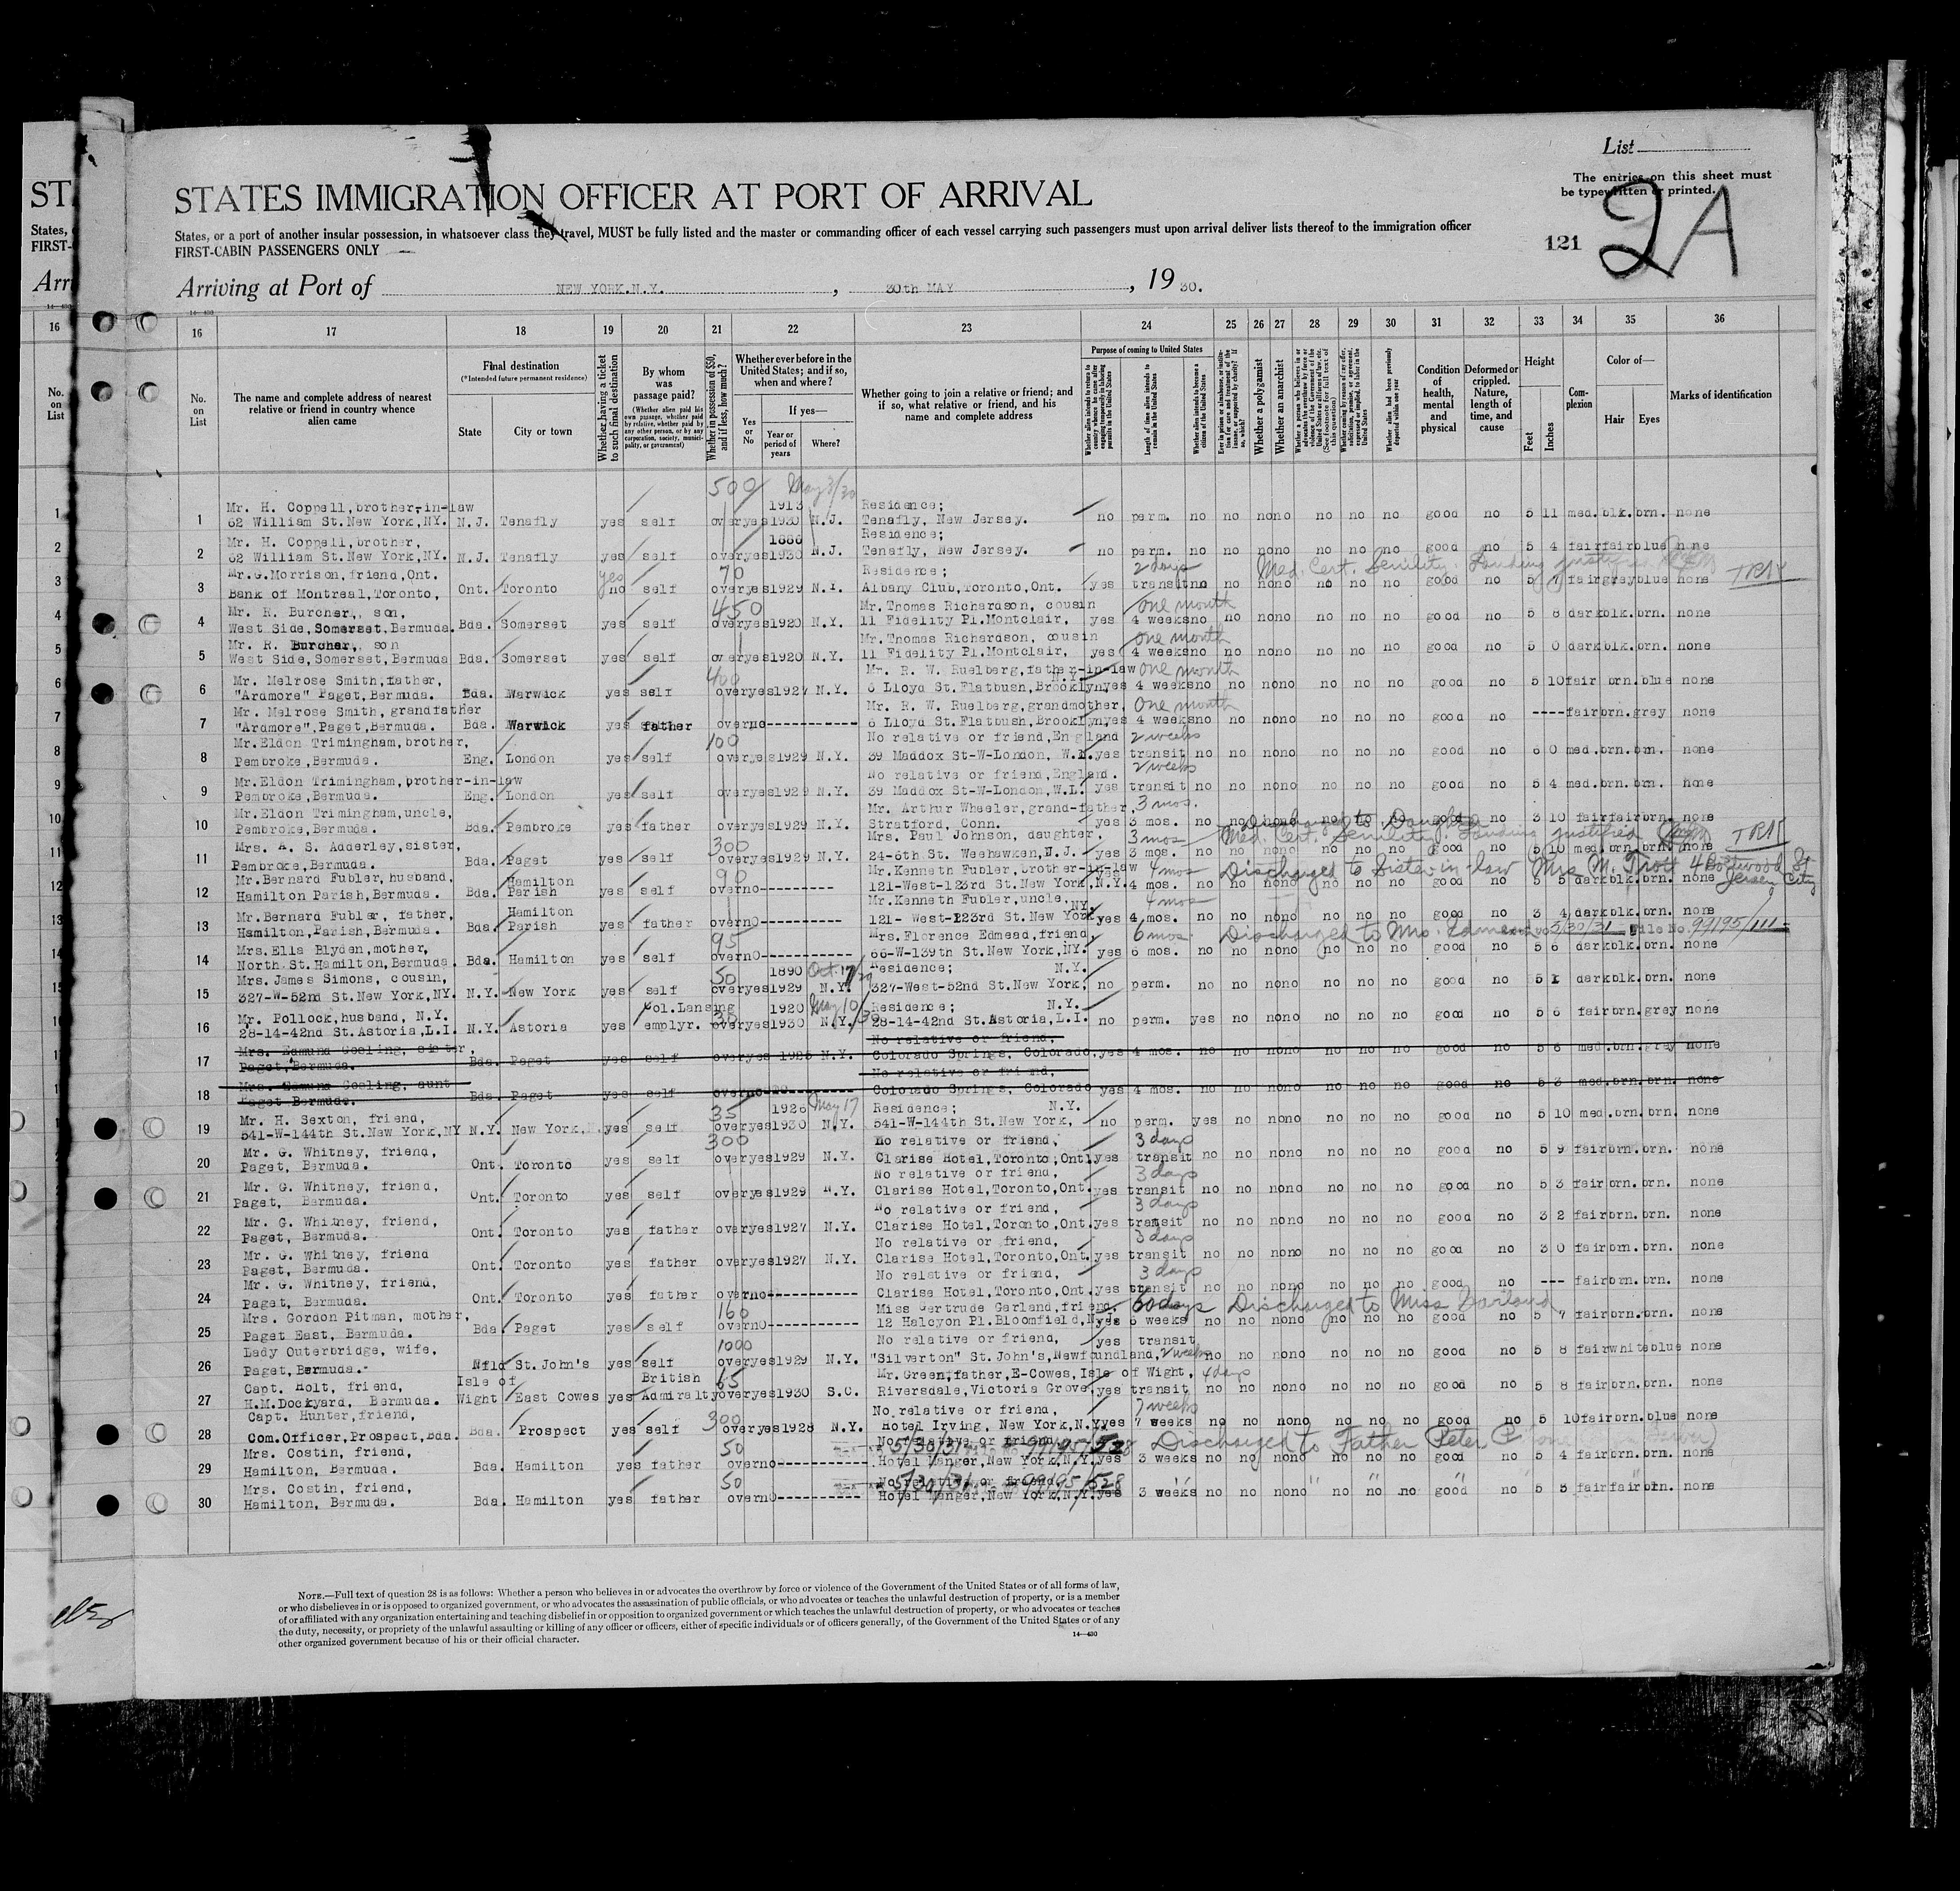 List
The entries on this sheet must
be typewritten or printed.
2A
121
STATES IMMIGRATION OFFICER AT PORT OF ARRIVAL
States, or a port of another insular possession, in whatsoever class they travel, MUST be fully listed and the master or commanding officer of each vessel carrying such passengers must upon arrival deliver lists thereof to the immigration officer
FIRST-CABIN PASSENGERS ONLY
Arriving at Port of NEW YORK.N.Y. , 30th MAY , 19 30.
16 17 18 19 20 21 22 23 24 25 26 27 28 29 30 31 32 33 34 35 36
No. on List
The name and complete address of nearest relative or friend in country whence alien came
Final destination
(*Intended future permanent residence)
State
City or town
Whether having a ticket to such final destination
By whom was passage paid?
(Whether alien paid his own passage, whether paid by relative, whether paid by any other person, or by any corporation, society, municipality, or government)
Whether in possession of $50, and if less, how much?
Whether ever before in the United States; and if so, when and where?
Yes or No
If yes—
Year or period of years
Where?
Whether going to join a relative or friend; and if so, what relative or friend, and his name and complete address
Purpose of coming to United States
Length of time alien intends to remain in the United States
Whether alien intends to become a citizen of the United States
Whether a polygamist
Whether an anarchist
Condition of health, mental and physical
Deformed or crippled. Nature, length of time, and cause
Height
Feet
Inches
Complexion
Color of—
Hair
Eyes
Marks of identification
500 May 3/30
Mr. H. Coppell,brother-in-law 1913 Residence;
1 62 William St.New York,NY. N.J. Tenafly yes self over yes 1930 N.J. Tenafly, New Jersey. no perm. no no no no no no no good no 5 11 med. blk. brn. none
Mr. H. Coppell,brother, 1886 Residence;
2 62 William St.New York,NY. N.J. Tenafly yes self over yes 1930 N.J. Tenafly, New Jersey. no perm. no no no no no no no good no 5 4 fair fair blue none
Mr.G.Morrison,friend,Ont. yes 70 Residence; 2 days Med. Cert. Senility. Landing justified
3 Bank of Montreal,Toronto, Ont. Toronto no self over yes 1929 N.Y. Albany Club,Toronto,Ont. yes transit no no no no no no no good no 5 7 fair grey blue none
Mr. R. Burcher, son, 450 Mr. Thomas Richardson, cousin one month
4 West Side,Somerset,Bermuda. Bda. Somerset yes self over yes 1920 N.Y. 11 Fidelity Pl.Montclair, yes 4 weeks no no no no no no no good no 5 8 dark blk. brn. none
Mr. R. Burcher, son Mr. Thomas Richardson, cousin one month
5 West Side,Somerset,Bermuda Bda. Somerset yes self over yes 1920 N.Y. 11 Fidelity Pl.Montclair, yes 4 weeks no no no no no no no good no 5 0 dark blk. brn. none
Mr. Melrose Smith,father, 400 Mr. R. W. Ruelberg,father-in-law one month
6 "Ardmore" Paget,Bermuda. Bda. Warwick yes self over yes 1927 N.Y. 6 Lloyd St.Flatbush,Brooklyn N.Y. yes 4 weeks no no no no no no no good no 5 10 fair brn. blue none
Mr. Melrose Smith, grandfather Mr. R. W. Ruelberg,grandmother, one month
7 "Ardmore",Paget,Bermuda. Bda. Warwick yes father over no ---------- 6 Lloyd St.Flatbush,Brooklyn, yes 4 weeks no no no no no no no good no ---- fair brn. grey none
Mr.Eldon Trimingham,brother, 100 No relative or friend,England 2 weeks
8 Pembroke,Bermuda. Eng. London yes self over yes 1929 N.Y. 39 Maddox St-W-London, W.1. yes transit no no no no no no no good no 6 0 med. brn. brn. none
Mr.Eldon Trimingham,brother-in-law No relative or friend,England. 2 weeks
9 Pembroke,Bermuda. Eng. London yes self over yes 1929 N.Y. 39 Maddox St-W-London,W.1. yes transit no no no no no no no good no 5 4 med. brn. brn. none
Mr.Eldon Trimingham,uncle, Mr. Arthur Wheeler,grand-father, 3 mos.
10 Pembroke,Bermuda. Bda. Pembroke yes father over yes 1929 N.Y. Stratford, Conn. yes 3 mos. no no no no no no no good no 3 10 fair fair brn. none
Mrs. A. S. Adderley,sister, 300 Mrs. Paul Johnson, daughter, 3 mos Discharged to Daughter Med. Cert. Senility. Landing justified
11 Pembroke,Bermuda. Bda. Paget yes self over yes 1929 N.Y. 24-6th St. Weehawken,N.J. yes 3 mos. no no no no no no no good no 5 10 med. brn. brn. none
Mr.Bernard Fubler,husband, Hamilton 90 Mr.Kenneth Fubler,brother-in-law 4 mos Discharged to Sister-in-law Mrs M. Trott Jersey City
12 Hamilton Parish,Bermuda. Bda. Parish yes self over no --------- 121-West-123rd St.New York,N.Y. yes 4 mos. no no no no no no no good no 5 5 dark blk. brn. none
Mr.Bernard Fubler, father, Hamilton Mr.Kenneth Fubler,uncle, NY. 4 mos
13 Hamilton,Parish,Bermuda. Bda. Parish yes father over no ---------- 121- West-123rd St.New York yes 4 mos. no no no no no no no good no 3 4 dark blk. brn. none
Mrs.Ella Blyden,mother, 95 Mrs.Florence Edmead,friend, 6 mos. Discharged to Mrs. Edmead 5/30/31 File No. 99195/111
14 North St.Hamilton,Bermuda. Bda. Hamilton yes self over no ---------- 66-W-139th St.New York,NY. yes 6 mos. no no no no no no no good no 5 6 dark blk. brn. none
Mrs. James Simons, cousin, 50 1890 Oct. 17/29 Residence; N.Y.
15 327-W-52nd St.New York,NY. N.Y. New York yes self over yes 1929 N.Y. 327-West-52nd St.New York, no perm. no no no no no no no good no 5 1 dark blk. brn. none
Mr. Pollock,husband, N.Y. Col.Lansing 35 1920 May 10/30 Residence; N.Y.
16 28-14-42nd St.Astoria,L.I. N.Y. Astoria yes emplyr. over yes 1930 N.Y. 28-14-42nd St.Astoria,L.I. no perm. yes no no no no no no good no 5 6 fair brn. grey none
Mrs. Edmund Gosling, sister, No relative or friend,
17 Paget,Bermuda. Bda. Paget yes self over yes 1926 N.Y. Colorado Springs, Colorado, yes 4 mos. no no no no no no no good no 5 6 med. brn. grey none
Mrs. Edmund Gosling, aunt No relative or friend,
18 Paget Bermuda. Bda. Paget yes self over no ---------- Colorado Springs, Colorado yes 4 mos. no no no no no no no good no 5 3 med. brn. brn. none
Mr. H. Sexton, friend, 35 1926 May 17 Residence; N.Y.
19 541-W-144th St.New York,NY N.Y. New York. yes self over yes 1930 N.Y. 541-W-144th St.New York, no perm. yes no no no no no no good no 5 10 med. brn. brn. none
Mr. G. Whitney, friend, 300 No relative or friend, 3 days
20 Paget, Bermuda. Ont. Toronto yes self over yes 1929 N.Y. Clarise Hotel,Toronto,Ont. yes transit no no no no no no no good no 5 9 fair brn. brn. none
Mr. G. Whitney, friend, No relative or friend, 3 days
21 Paget, Bermuda. Ont. Toronto yes self over yes 1929 N.Y. Clarise Hotel,Toronto,Ont. yes transit no no no no no no no good no 5 3 fair brn. brn. none
Mr. G. Whitney, friend, No relative or friend, 3 days
22 Paget, Bermuda. Ont. Toronto yes father over yes 1927 N.Y. Clarise Hotel,Toronto,Ont. yes transit no no no no no no no good no 3 2 fair brn. brn. none
Mr. G. Whitney, friend No relative or friend, 3 days
23 Paget, Bermuda. Ont. Toronto yes father over yes 1927 N.Y. Clarise Hotel,Toronto,Ont. yes transit no no no no no no no good no 3 0 fair brn. brn. none
Mr. G. Whitney, friend, No relative or friend, 3 days
24 Paget, Bermuda. Ont. Toronto yes father over no ---------- Clarise Hotel,Toronto,Ont. yes transit no no no no no no no good no --- fair brn. brn. none
Mrs. Gordon Pitman, mother, 160 Miss Gertrude Gerland,friend. 60 days Discharged to Miss Garland
25 Paget East, Bermuda. Bda. Paget yes self over no ---------- 12 Halcyon Pl.Bloomfield,N. yes 6 weeks no no no no no no no good no 5 7 fair brn. brn. none
Lady Outerbridge, wife, 1000 No relative or friend, yes transit
26 Paget,Bermuda. Nfld St.John's yes self over yes 1929 N.Y. "Silverton" St.John's,Newfoundland, 2 weeks no no no no no no no good no 5 8 fair white blue none
Capt. Holt, friend, Isle of British 65 Mr. Green,father,E-Cowes,Isle of Wight, 4 days
27 H.M.Dockyard, Bermuda. Wight East Cowes yes Admiralty over yes 1930 S.C. Riversdale,Victoria Grove, yes transit no no no no no no no good no 5 8 fair brn. brn. none
Capt. Hunter,friend, 300 No relative or friend, 7 weeks
28 Com.Officer,Prospect,Bda. Bda. Prospect yes self over yes 1928 N.Y. Hotel Irving, New York,N.Y. yes 7 weeks no no no no no no no good no 5 10 fair brn. blue none
Mrs. Costin, friend, 50 No relative or friend 5/30/31 99195/528 Discharged to Father Peter
29 Hamilton, Bermuda. Bda. Hamilton yes father over no ---------- Hotel Manger,New York,N.Y. yes 3 weeks no no no no no no no good no 5 4 fair brn. brn. none
Mrs. Costin, friend, 50 No relative or friend 5/30/31 99195/528
30 Hamilton, Bermuda. Bda. Hamilton yes father over no ---------- Hotel Manger,New York,N.Y. yes 3 weeks no no no no no no no good no 5 5 fair fair brn. none
NOTE.—Full text of question 28 is as follows: Whether a person who believes in or advocates the overthrow by force or violence of the Government of the United States or of all forms of law,
or who disbelieves in or is opposed to organized government, or who advocates the assassination of public officials, or who advocates or teaches the unlawful destruction of property, or is a member
of or affiliated with any organization entertaining and teaching disbelief in or opposition to organized government or which teaches the unlawful destruction of property, or who advocates or teaches
the duty, necessity, or propriety of the unlawful assaulting or killing of any officer or officers, either of specific individuals or of officers generally, of the Government of the United States or of any
other organized government because of his or their official character.
14—430